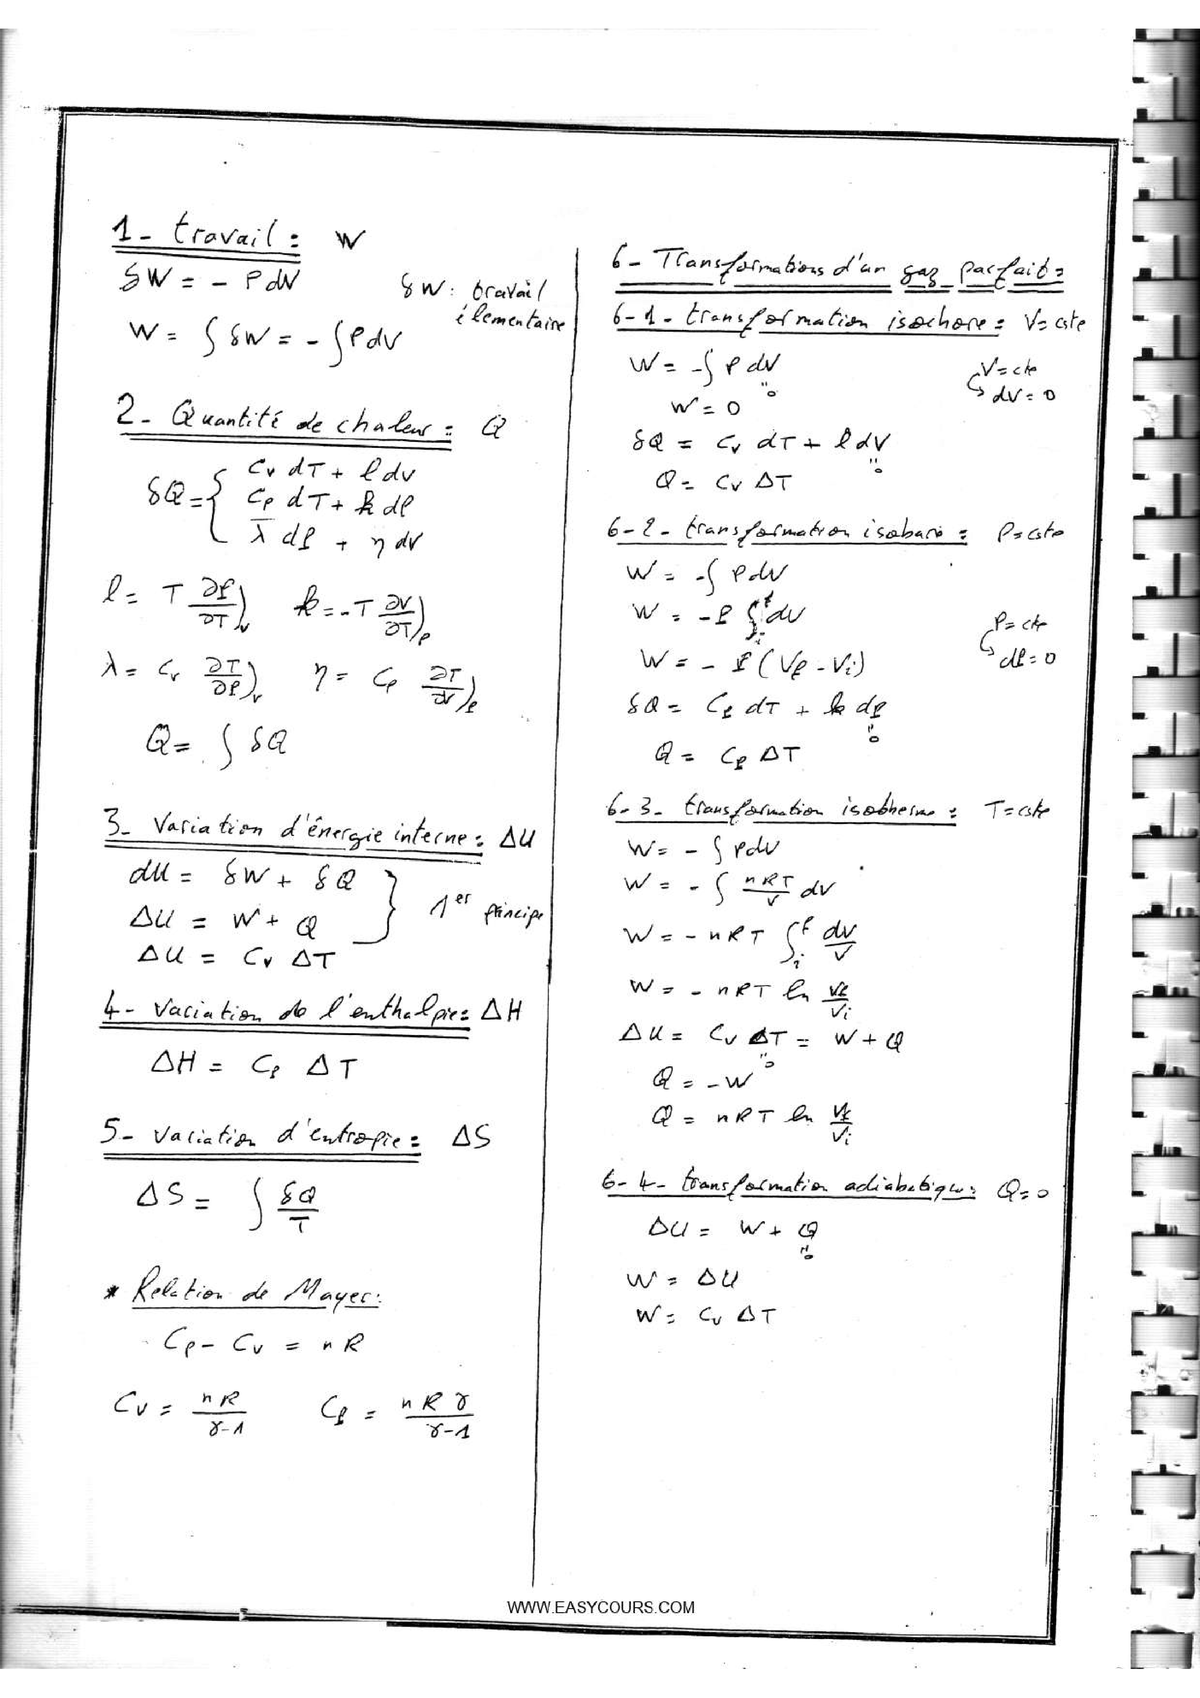 1- travail : W
δW = - PdV
δW : travail
élementaire
W = ∫ δW = - ∫ PdV
2- Quantité de chaleur : Q
δQ = { Cv dT + l dv
Cp dT + k dP
λ dP + η dv
l = T ∂P/∂T)v k = -T ∂V/∂T)p
λ = Cv ∂T/∂P)v η = Cp ∂T/∂V)p
Q = ∫ δQ
3- Variation d'énergie interne : ΔU
dU = δW + δQ
ΔU = W + Q } 1er principe
ΔU = Cv ΔT
4- Variation de l'enthalpie : ΔH
ΔH = Cp ΔT
5- Variation d'entropie : ΔS
ΔS = ∫ δQ/T
* Relation de Mayer :
Cp - Cv = nR
Cv = nR/γ-1 Cp = nRγ/γ-1
6- Transformations d'un gaz parfait :
6-1- transformation isochore : V=cste
W = -∫ P dV
"0
V=cte
W = 0
↪ dV=0
δQ = Cv dT + l dV
"0
Q = Cv ΔT
6-2- transformation isobare : P=cste
W = -∫ PdV
W = -P ∫ᵢᶠ dV
P=cte
↪ dP=0
W = - P (Vf - Vi)
δQ = Cp dT + k dP
"0
Q = Cp ΔT
6-3- transformation isotherme : T=cste
W = - ∫ PdV
W = - ∫ nRT/V dV
W = - nRT ∫ᵢᶠ dV/V
W = - nRT ln Vf/Vi
ΔU = Cv ΔT = W + Q
"0
Q = -W
Q = nRT ln Vf/Vi
6-4- transformation adiabatique : Q=0
ΔU = W + Q
"0
W = ΔU
W = Cv ΔT
WWW.EASYCOURS.COM